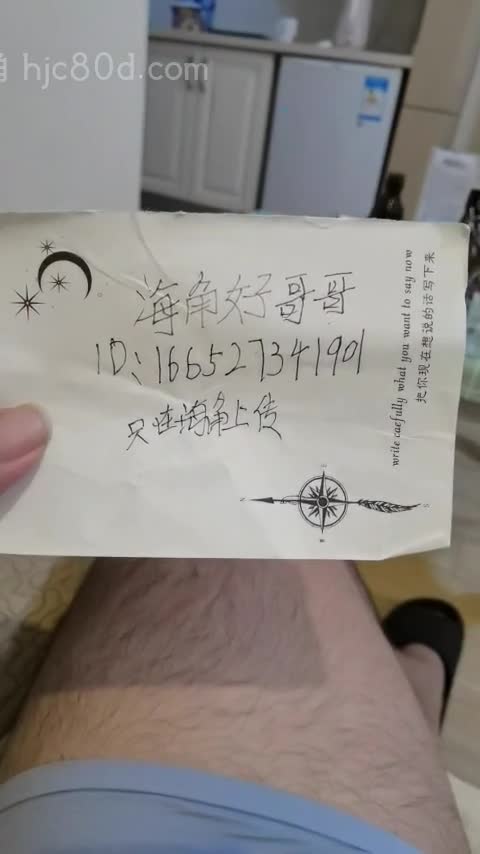 角 hjc80d.com
海角好哥哥
ID:166527341901
只在海角上传
write caefully what you want to say now
把你现在想说的话写下来